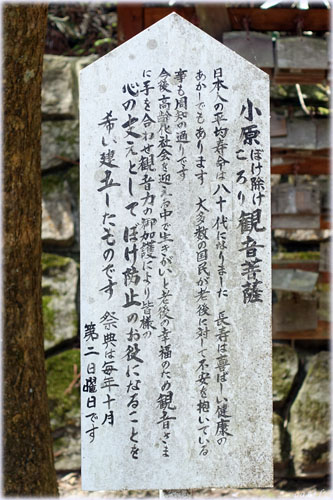 小原 ぼけ除け ころり 観音菩薩
日本人の平均寿命は八十代になりました 長寿は喜ばしい健康の
あかしでもあります 大多数の国民が老後に対して不安を抱いている
事も周知の通りです
今後高齢化社会を迎える中で生きがいと老後の幸福のため観音さま
に手を合わせ観音力の御加護により皆様の
心の支えとしてぼけ防止のお役になることを
希い建立したものです 祭典は毎年十月
第二日曜日です